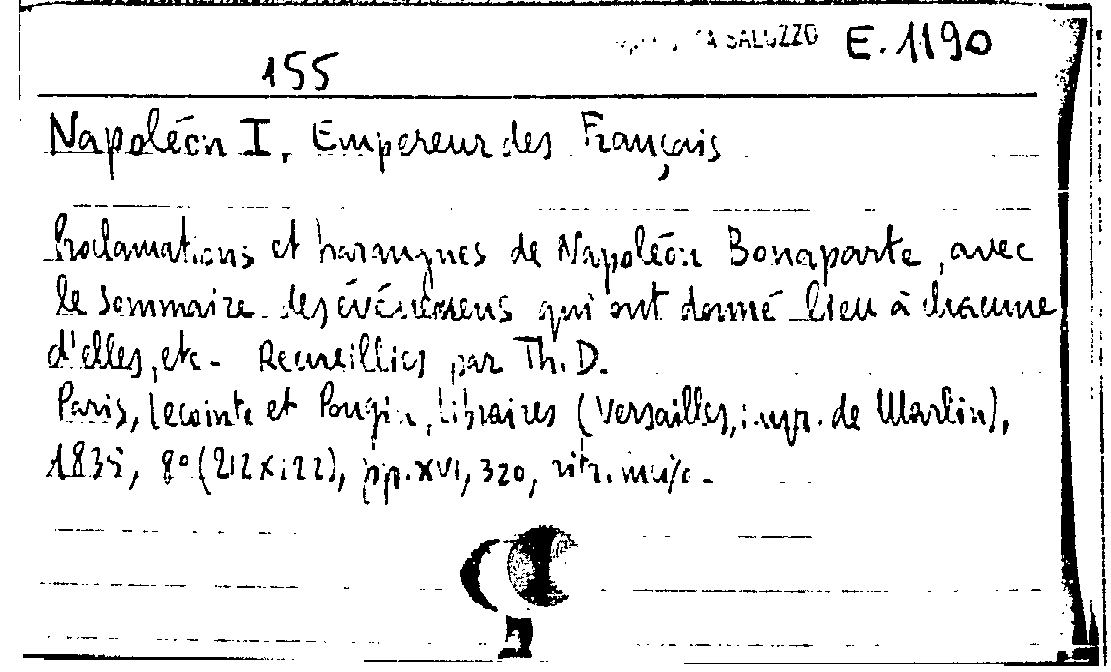 SALUZZO E. 1190
155
Napoléon I, Empereur des Français
Proclamations et harangues de Napoléon Bonaparte, avec
le sommaire des événemens qui ont donné lieu à chacune
d'elles, etc - Recueillies par Th. D.
Paris, Lecointe et Pougin, libraires (Versailles, impr. de Marlin),
1835, 8° (212x122), pp. XVI, 320, ritr. inciso -